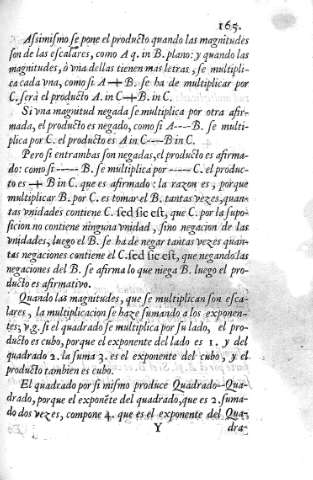 165.
Assimismo se pone el producto quando las magnitudes
son de las escalares, como A q. in B. plano: y quando las
magnitudes, ò vna dellas tienen mas letras, se multipli-
ca cada vna, como si A + B. se ha de multiplicar por
C. serà el producto A. in C + B. in C.
Si vna magnitud negada se multiplica por otra afir-
mada, el producto es negado, como si A---- B. se multi-
plica por C. el producto es A in C---- B in C.
Pero si entrambas son negadas, el producto es afirma-
do: como si----- B. se multiplica por ----- C. el produc-
to es + B in C. que es afirmado: la razon es, porque
multiplicar B. por C. es tomar el B. tantas vezes, quan-
tas vnidades contiene C. sed sic est, que C. por la supo-
sicion no contiene ninguna vnidad, sino negacion de las
vnidades; luego el B. se ha de negar tantas vezes quan-
tas negaciones contiene el C. sed sic est, que negando las
negaciones del B. se afirma lo que mega B. luego el pro-
ducto es afirmativo.
Quando las magnitudes, que se multiplican son esca-
lares, la multiplicacion se haze sumando a los exponen-
tes; v.g. si el quadrado se multiplica por su lado, el pro-
ducto es cubo, porque el exponente del lado es 1. y del
quadrado 2. la suma 3. es el exponente del cubo, y el
producto tambien es cubo.
El quadrado por si mismo produce Quadrado--Qua-
drado, porque el exponẽte del quadrado, que es 2. suma-
do dos vezes, compone 4. que es el exponente del Qua-
Y dra-